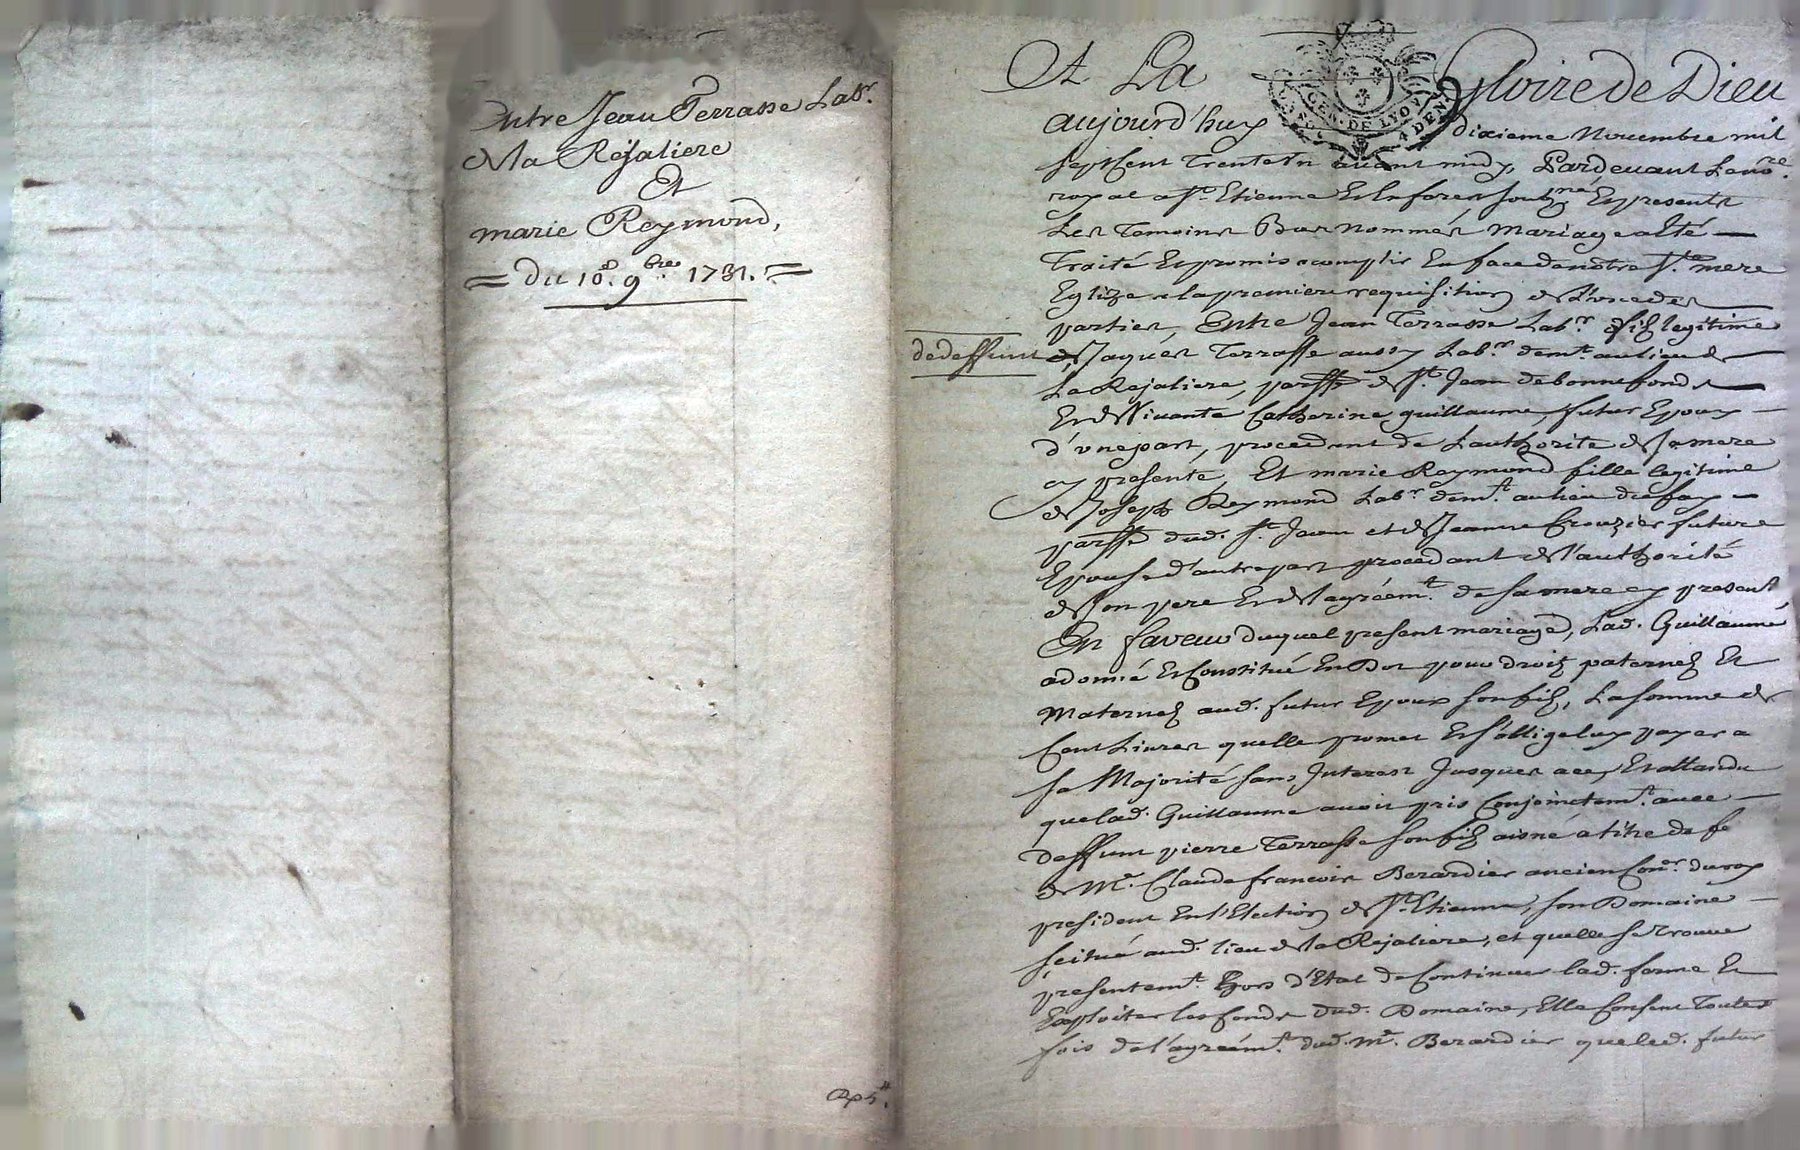 Entre Jean Terrasse Lab.r
De la Rejaliere
Et
marie Reymond,
= du 10.e 9.bre 1731. =
Rx 5.#
A La Gloire de Dieu
GEN. DE LYON
4 DEN.
aujourd'huy dixieme Novembre mil
sept Cent Trente Un avant midy, Pardevant Le no.re
royal a S.t Etienne En forest soubz.né Et presents
Les Temoins Bas nommés Mariage a Eté —
Traité Et promis acomplir En face de notre S.te mere
Eglize a la premiere requisition de L'une des
parties, Entre Jean Terrasse Lab.r fils legitime
de deffunt
de Jaques Terrasse aussy Lab.r dem.t au lieu de
La Rejaliere, parsse de S.t Jean de bonnefonds
Et de Vivante Catherine guillaume, futur Epoux —
d'vne part, procedant de L'authorité de Sa mere
cy presente, Et marie Reymond fille legitime
de Joseph Reymond Lab.r dem.t au lieu du fay —
parsse dud. S.t Jean et de Jeanne Crouzier future
Epouse d'autre part procedant de l'authorité
de Son pere Et de l'agréem.t de sa mere cy present.
En faveur duquel present mariage, Lad. Guillaume
a donné Et Constitué En Dot pour droits paternels Et
Maternels aud. futur Epoux son fils, La somme de
Cent Livres quelle promet Et s'oblige luy payer a
sa Majorité sans Interest Jusques a ce, Et attandu
que lad. Guillaume avoit pris Conjoinctem.t avec —
deffunt pierre Terrasse son fils aisné a titre de fe
de M.e Claude francois Berardier ancien Con.er du roy
president En l'Election de S.t Etienne, son Domaine —
scitué aud. lieu de la Rejaliere, et quelle se trouve
presentem.t hors d'Etat de Continuer lad. ferme Et
Exploiter les fonds dud. Domaine, Elle Consent Toutes
fois de l'agréem.t dud. M.e Berardier que led. futur